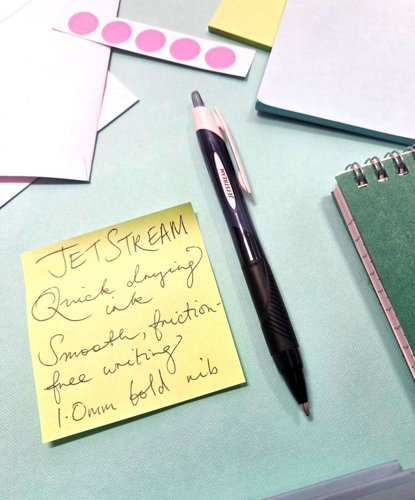 JETSTREAM
Quick drying
ink
Smooth, friction-
free writing
1.0mm bold nib
JETSTREAM